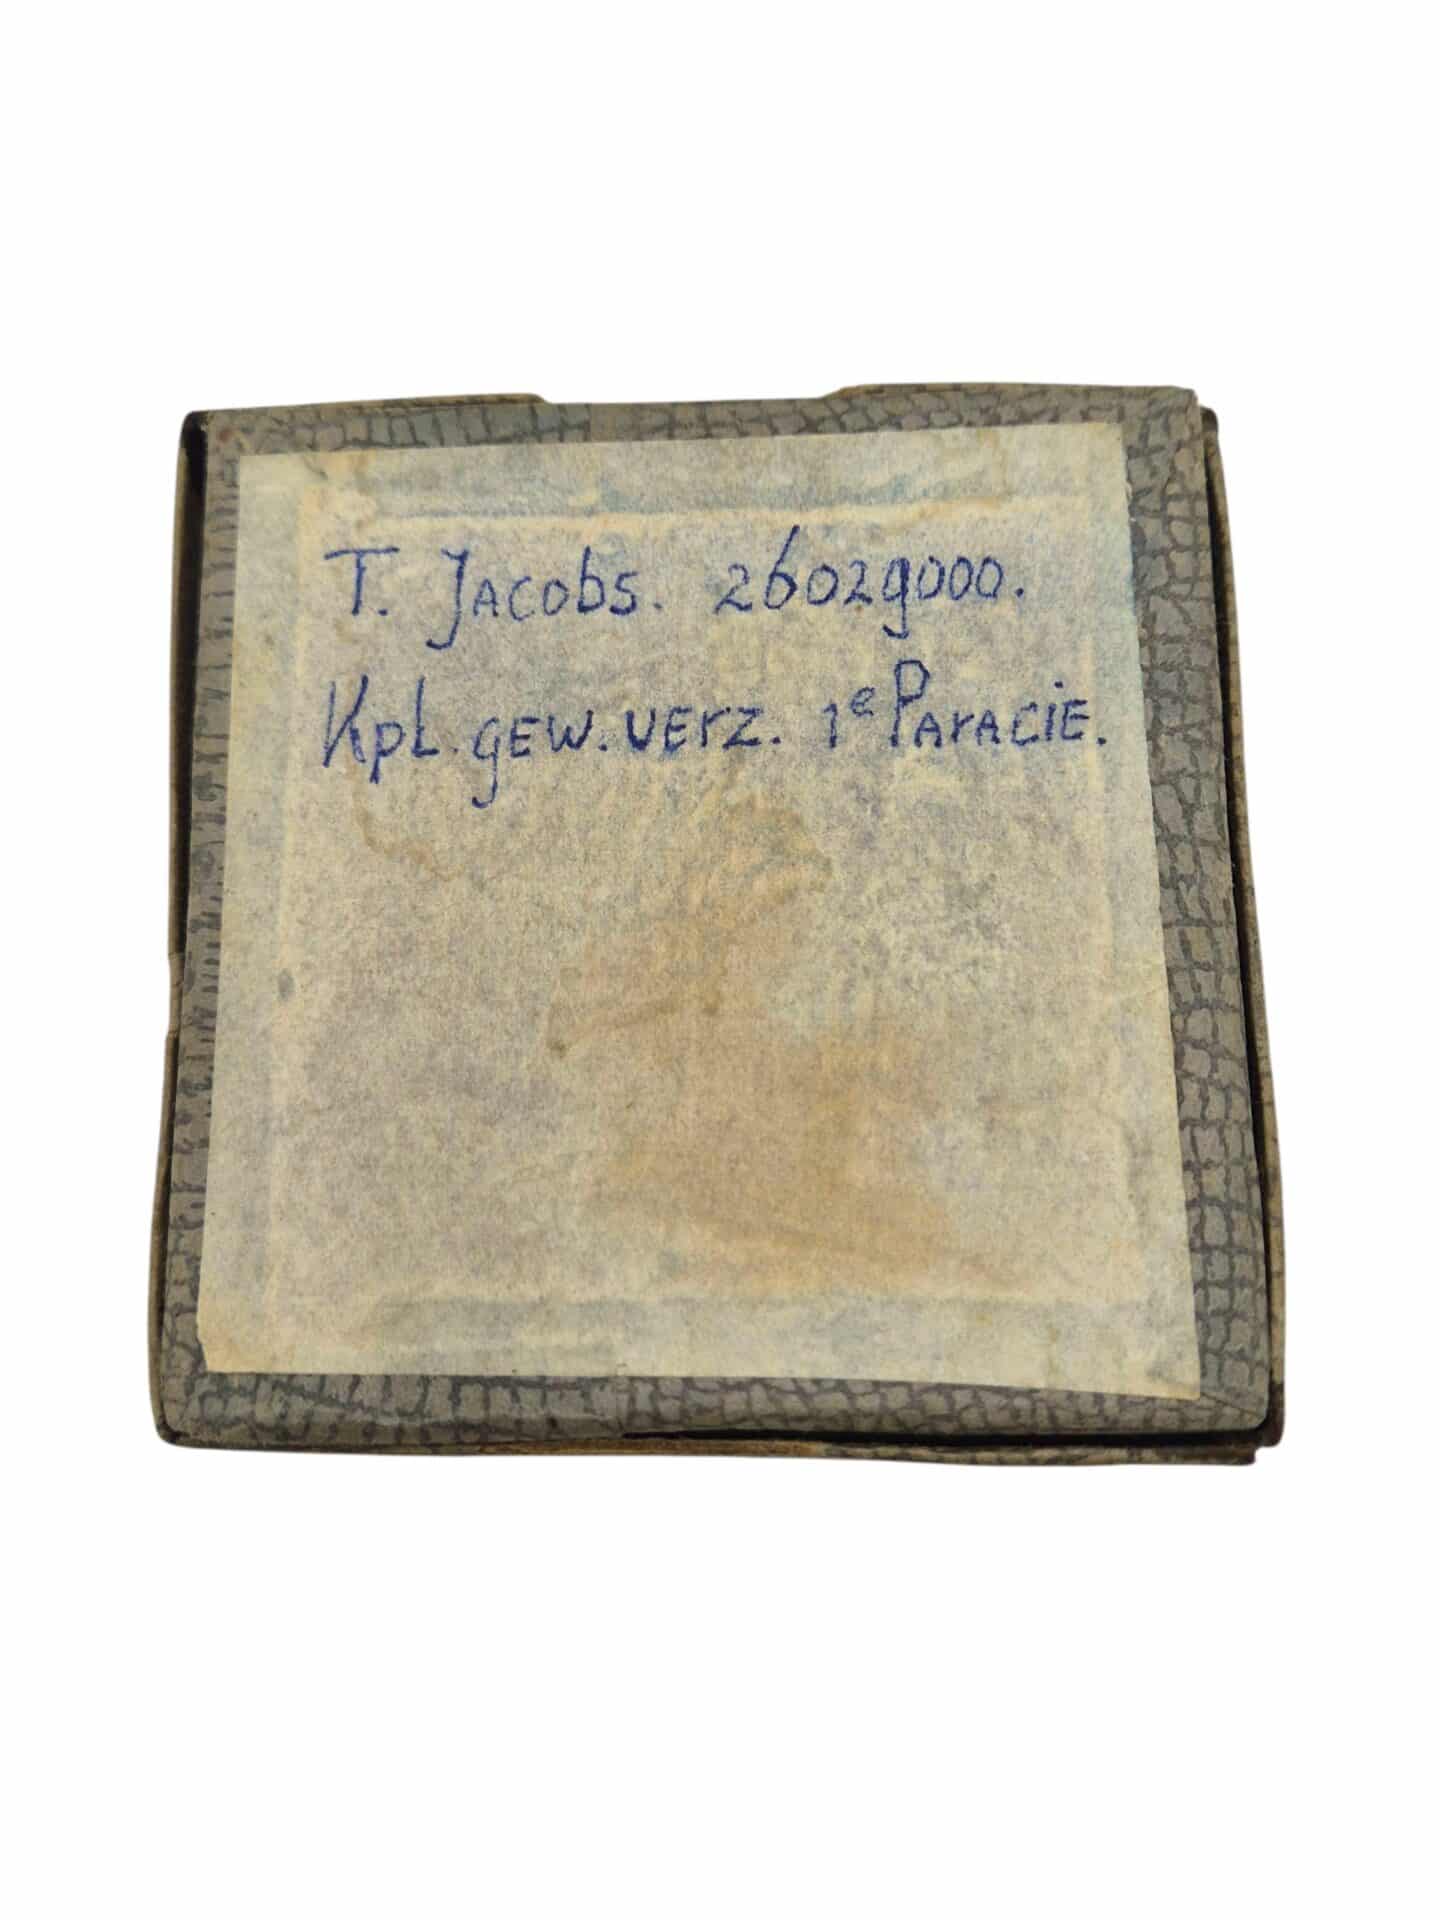 T. Jacobs. 26029000.
Kpl. gew. verz. 1e Paracie.